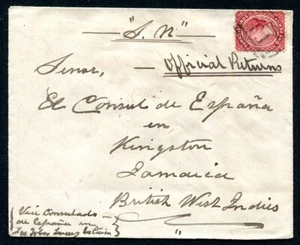 "S. N"
Official Returns
Senor,
El Consul de España
en
Kingston
Jamaica
British West Indies
Vice Consulado
de España en